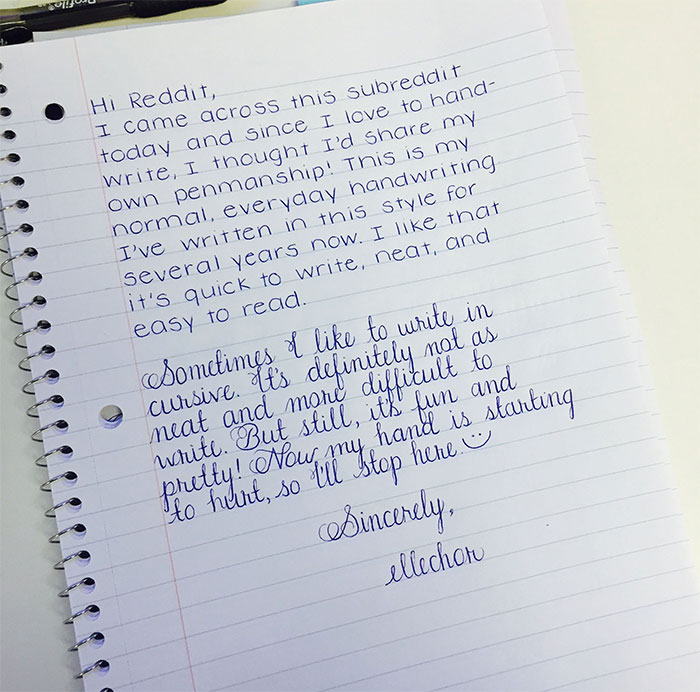 Profile
Hi Reddit,
I came across this subreddit
today and since I love to hand-
write, I thought I'd share my
own penmanship! This is my
normal, everyday handwriting
I've written in this style for
several years now. I like that
it's quick to write, neat, and
easy to read.
Sometimes I like to write in
cursive. It's definitely not as
neat and more difficult to
write. But still, it's fun and
pretty! Now my hand is starting
to hurt, so I'll stop here. ☺
Sincerely,
ellechor